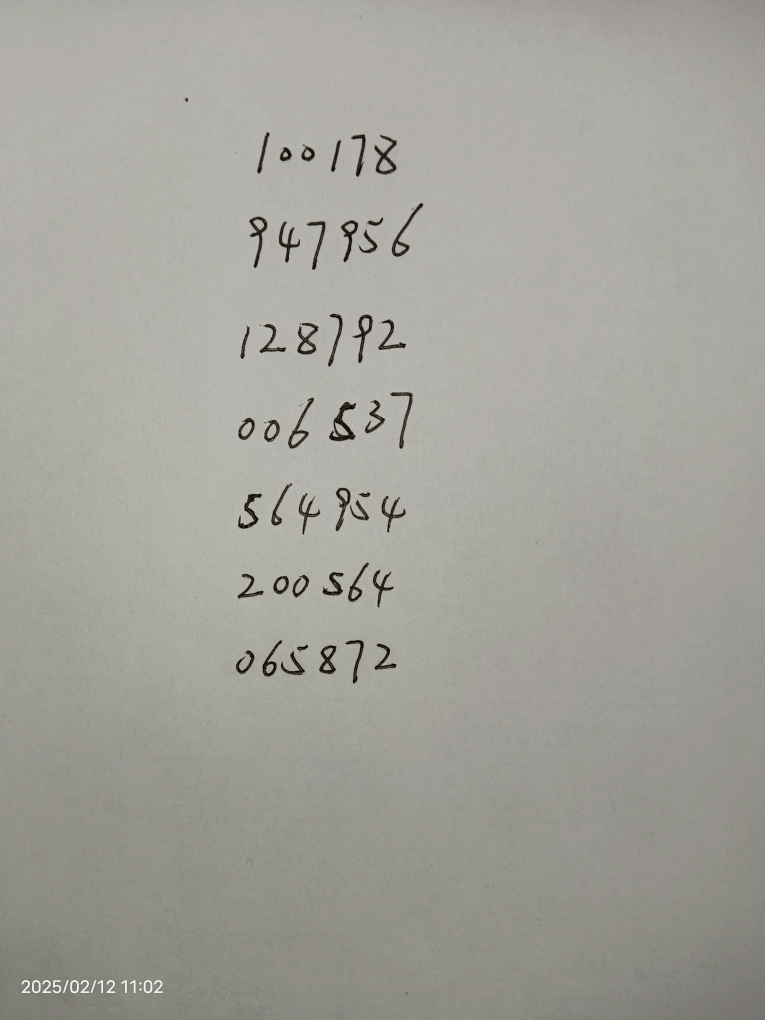 100178
947956
128792
006537
564954
200564
065872
2025/02/12 11:02